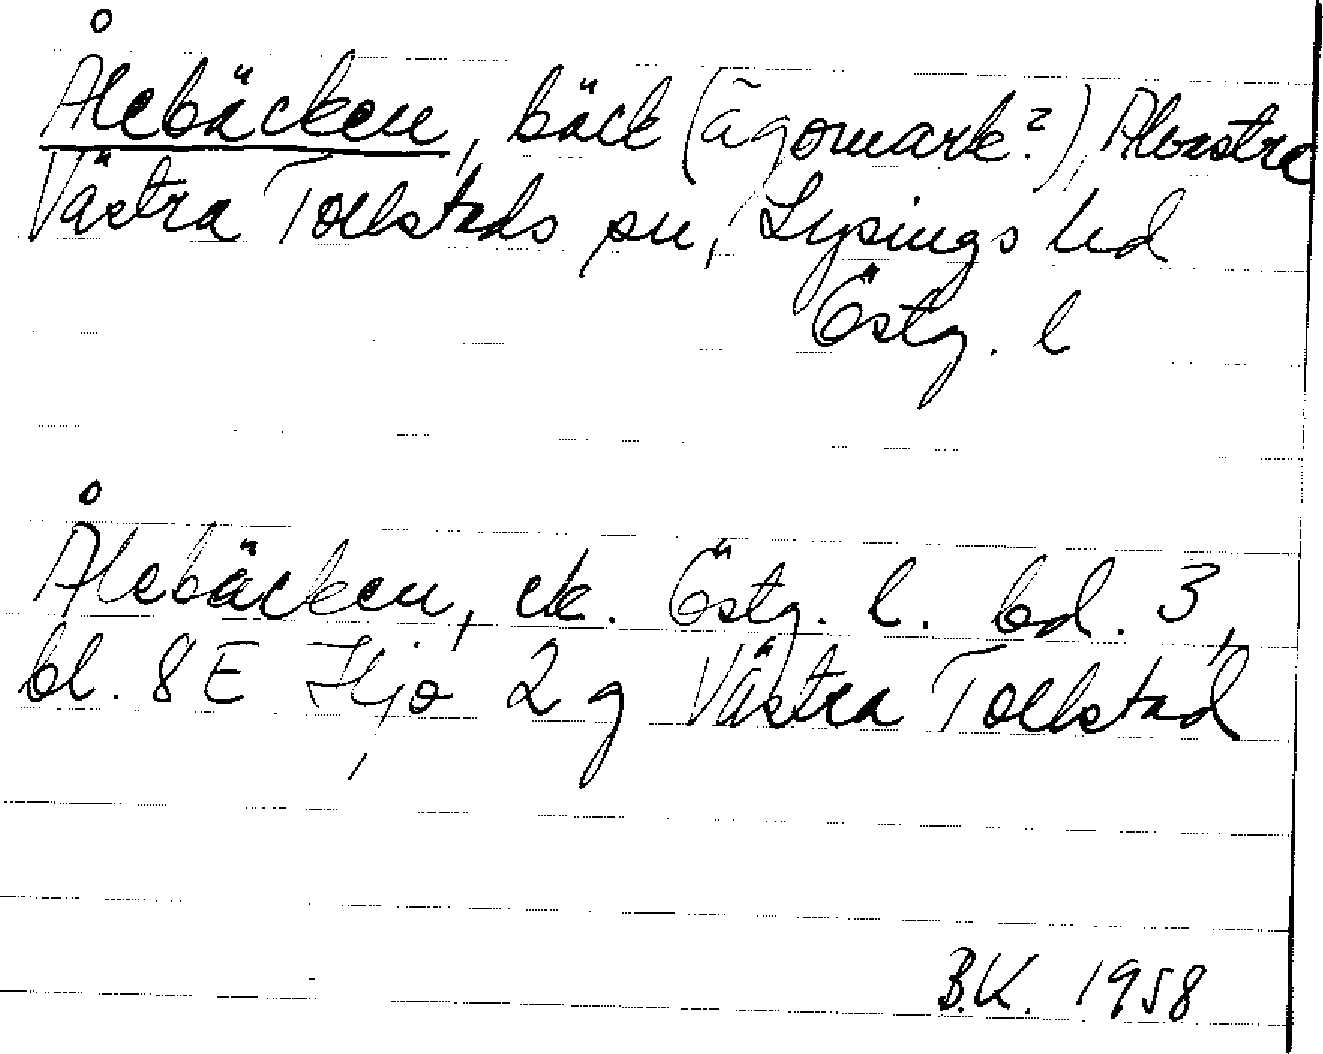 Ålebäcken, bäck (ägomark?), Alvastra
Västra Tollstads sn, Lysings hd
Östg. l
Ålebäcken, ek. Östg. l. bd. 3,
bl. 8E Hjo 2 g Västra Tollstad
B.K. 1958